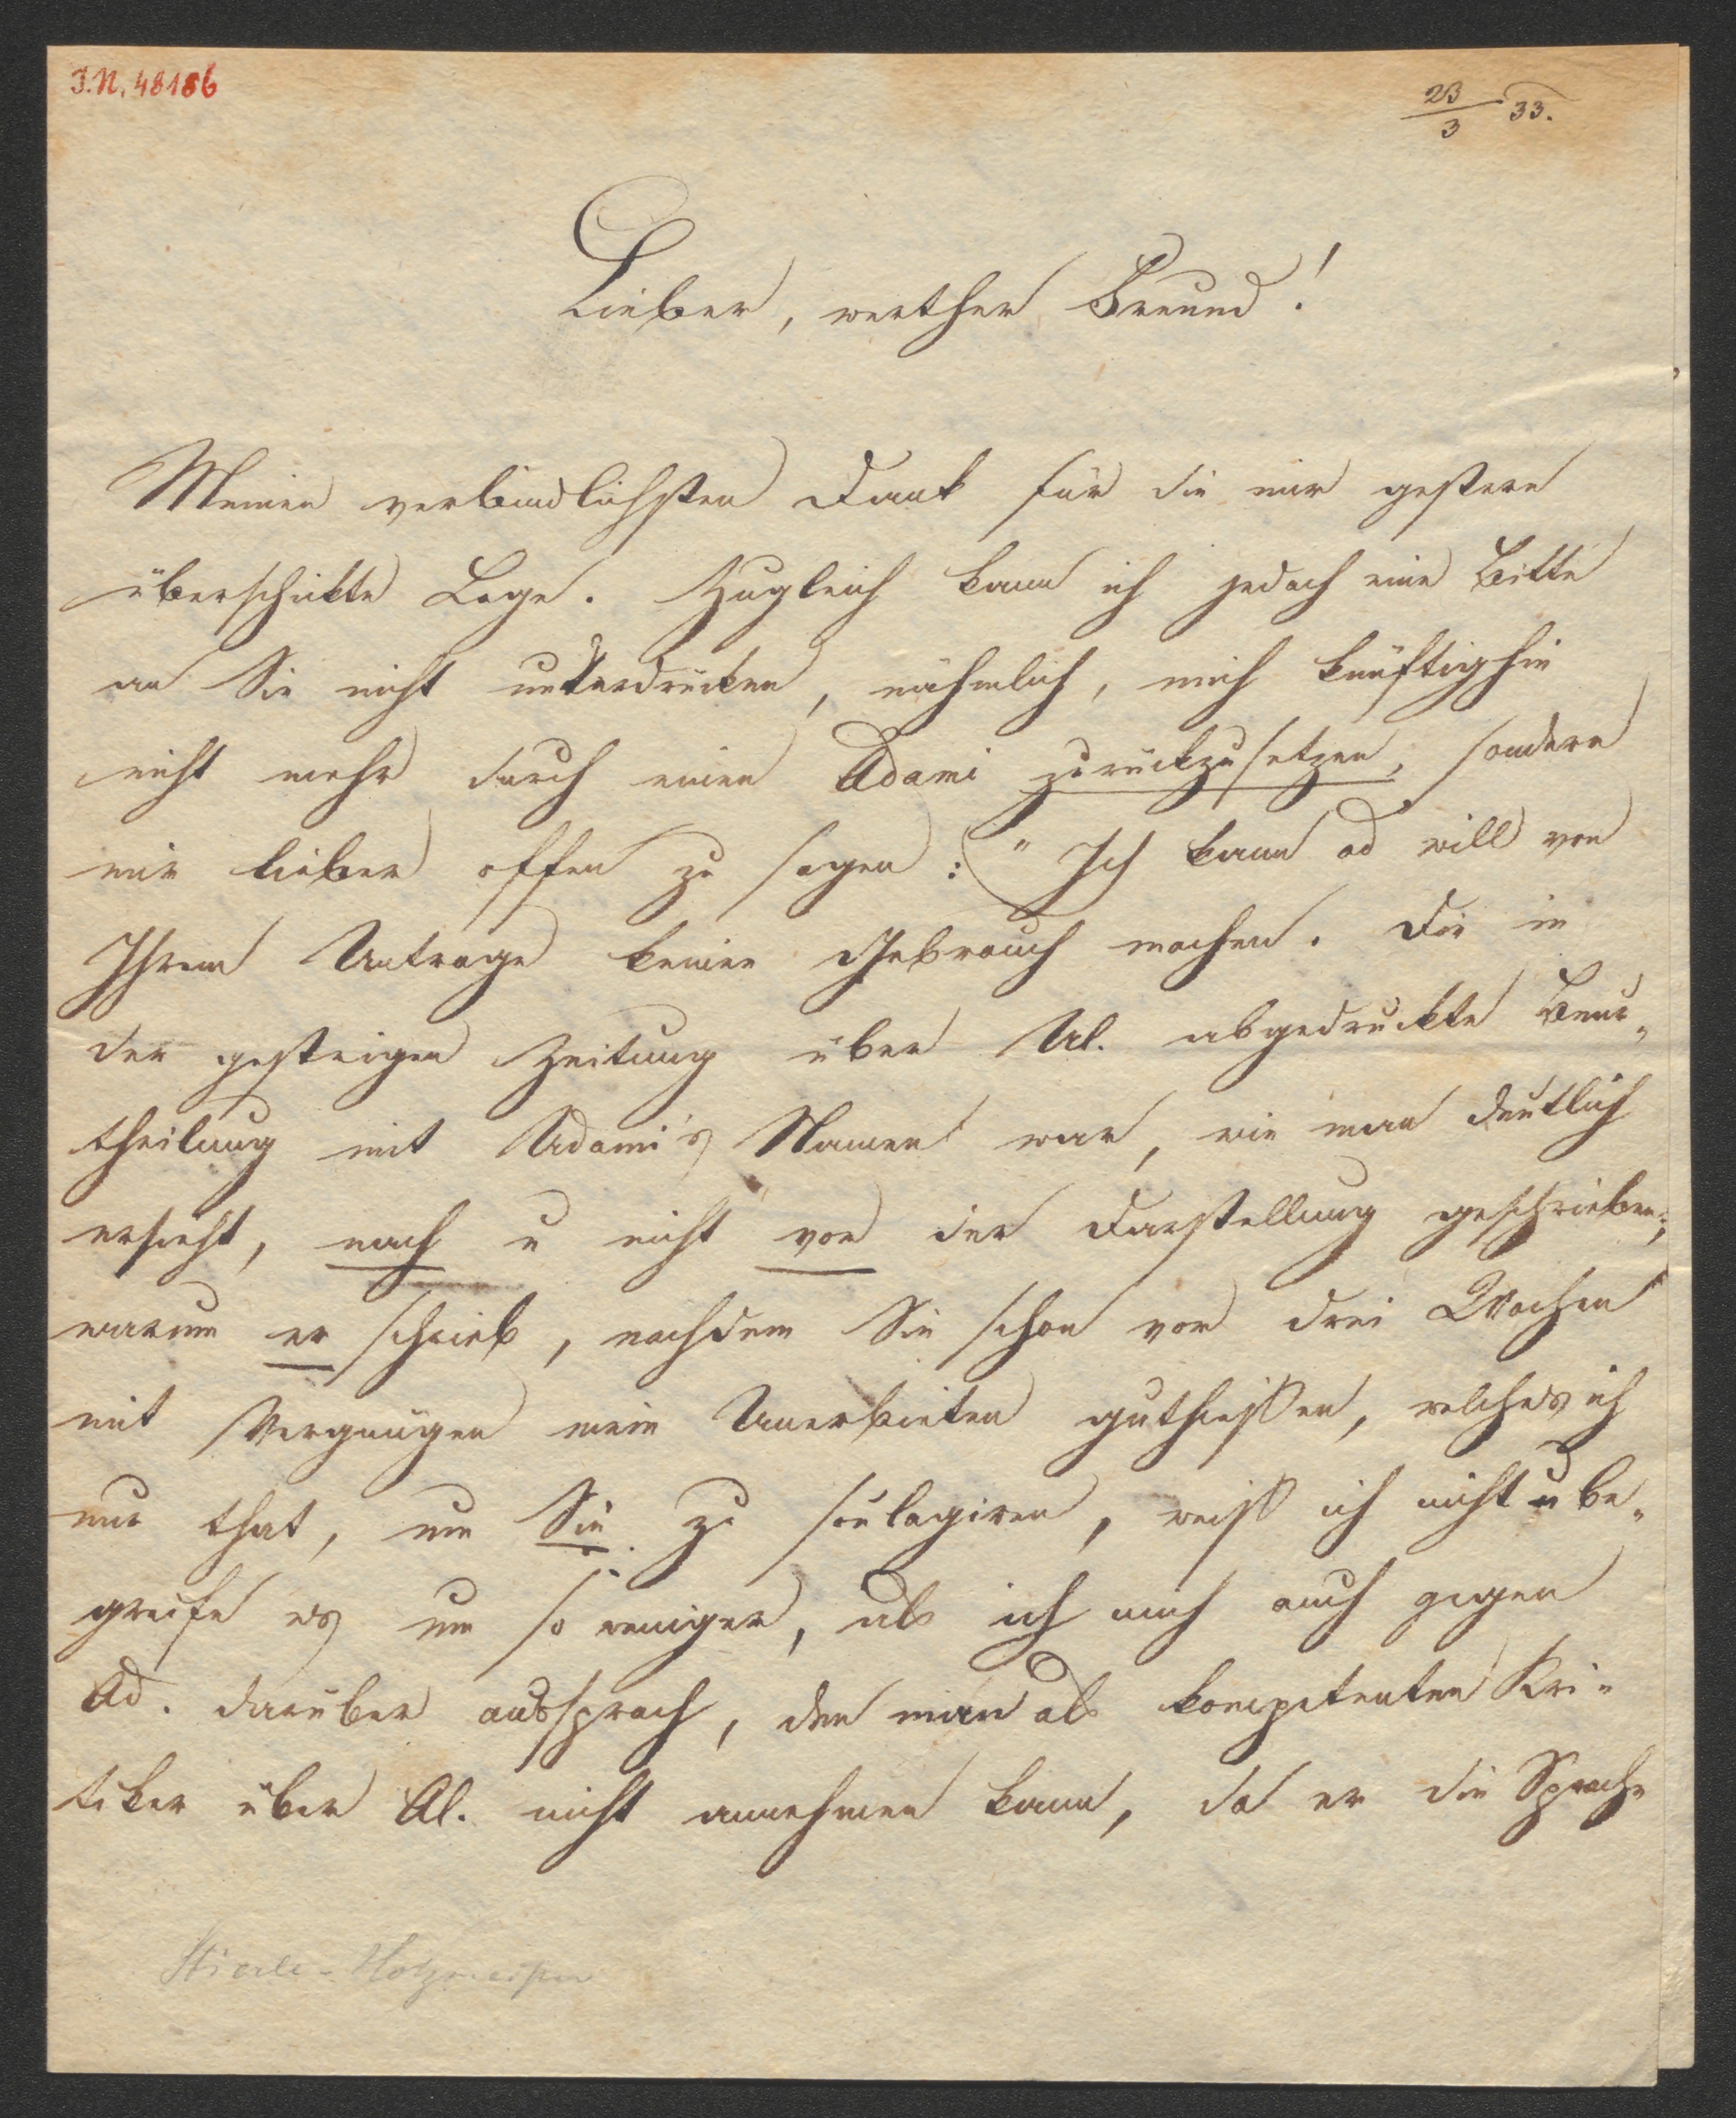 I.N. 48186
23/3 33.
Lieber, werther Freund!
Meinen verbindlichsten Dank für die mir gestern
überschickte Loge. Zugleich kann ich jedoch eine Bitte
an Sie nicht unterdrücken, nähmlich, mich künftighin
nicht mehr durch einen Adami zurückzusetzen, sondern
mir lieber offen zu sagen: "Ich kann od will von
Ihrem Antrage keinen Gebrauch machen. Die in
der gestrigen Zeitung über Al. abgedruckte Beur-
theilung mit Adami's Namen war, wie man deutlich
ersieht, nach u nicht vor der Darstellung geschrieben;
warum er schrieb, nachdem Sie schon vor drei Wochen
mit Vergnügen mein Anerbieten guthießen, welches ich
nur that, um Sie zu soulagiren, weiß ich nicht u be-
greife es um so weniger, als ich mich auch gegen
Ad. darüber aussprach, den man als kompetenten Kri-
tiker über Al. nicht annehmen kann, da er die Sprache
Stierle-Holzmeister